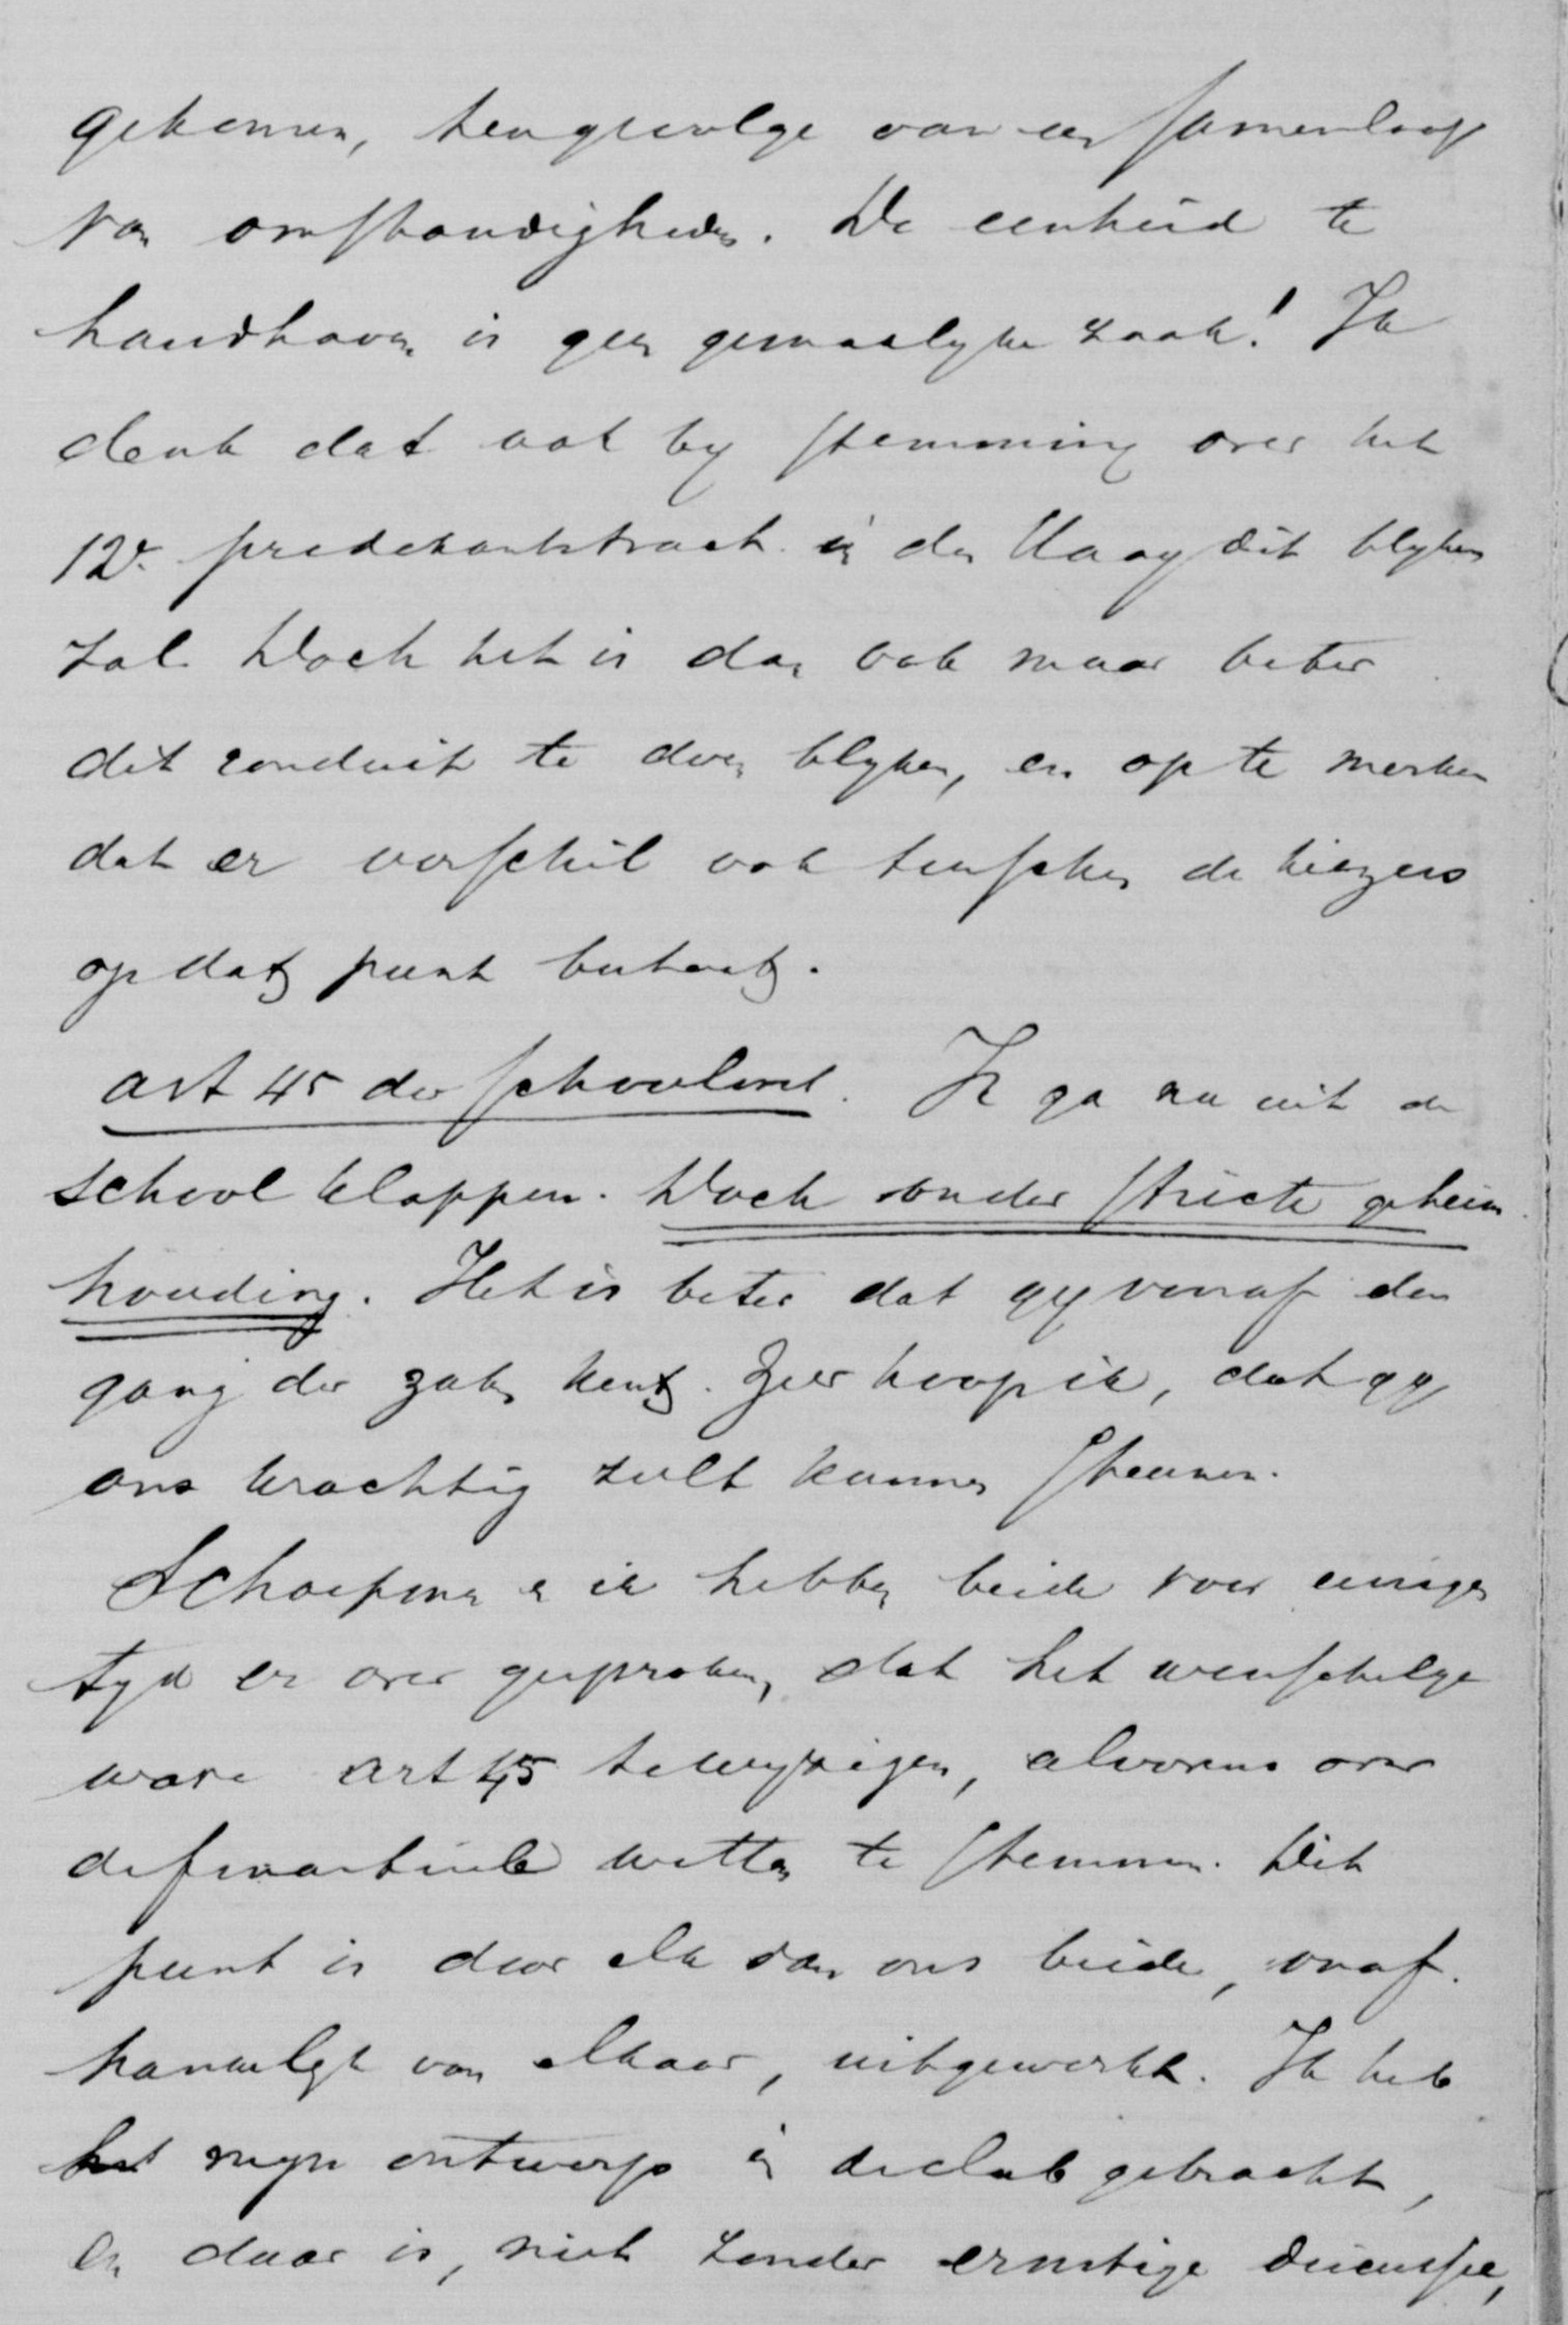 gekomen, tengevolge van een samenloop
van omstandigheden. De eenheid te
handhaven is geen gemaklyke zaak! Ik
denk dat ook by stemming over het
12e predikantstract. in den Haag dit blyken
zal. Doch het is dan ook maar beter
dit ronduit te doen blyken, en op te merken
dat er verschil ook tusschen de kiezers
op dat punt bestaat.
art 45 der schoolwet. Ik ga nu uit de
school klappen. Doch onder stricte geheim
houding. Het is beter dat gy vooraf den
gang der zaken kent. Zeer hoop ik, dat gy
ons krachtig zult kunnen steunen.
Schaepman en ik hebben beide voor eenigen
tyd er over gesproken, dat het wenschelyk
ware art 45 te wyzigen, alvorens over
de finantieele wetten te stemmen. Dit
punt is door elk van ons beide, onaf-
hankelyk van elkaar, uitgewerkt. Ik heb
het myn ontwerp in de club gebracht,
en daar is, niet zonder ernstige discussie,